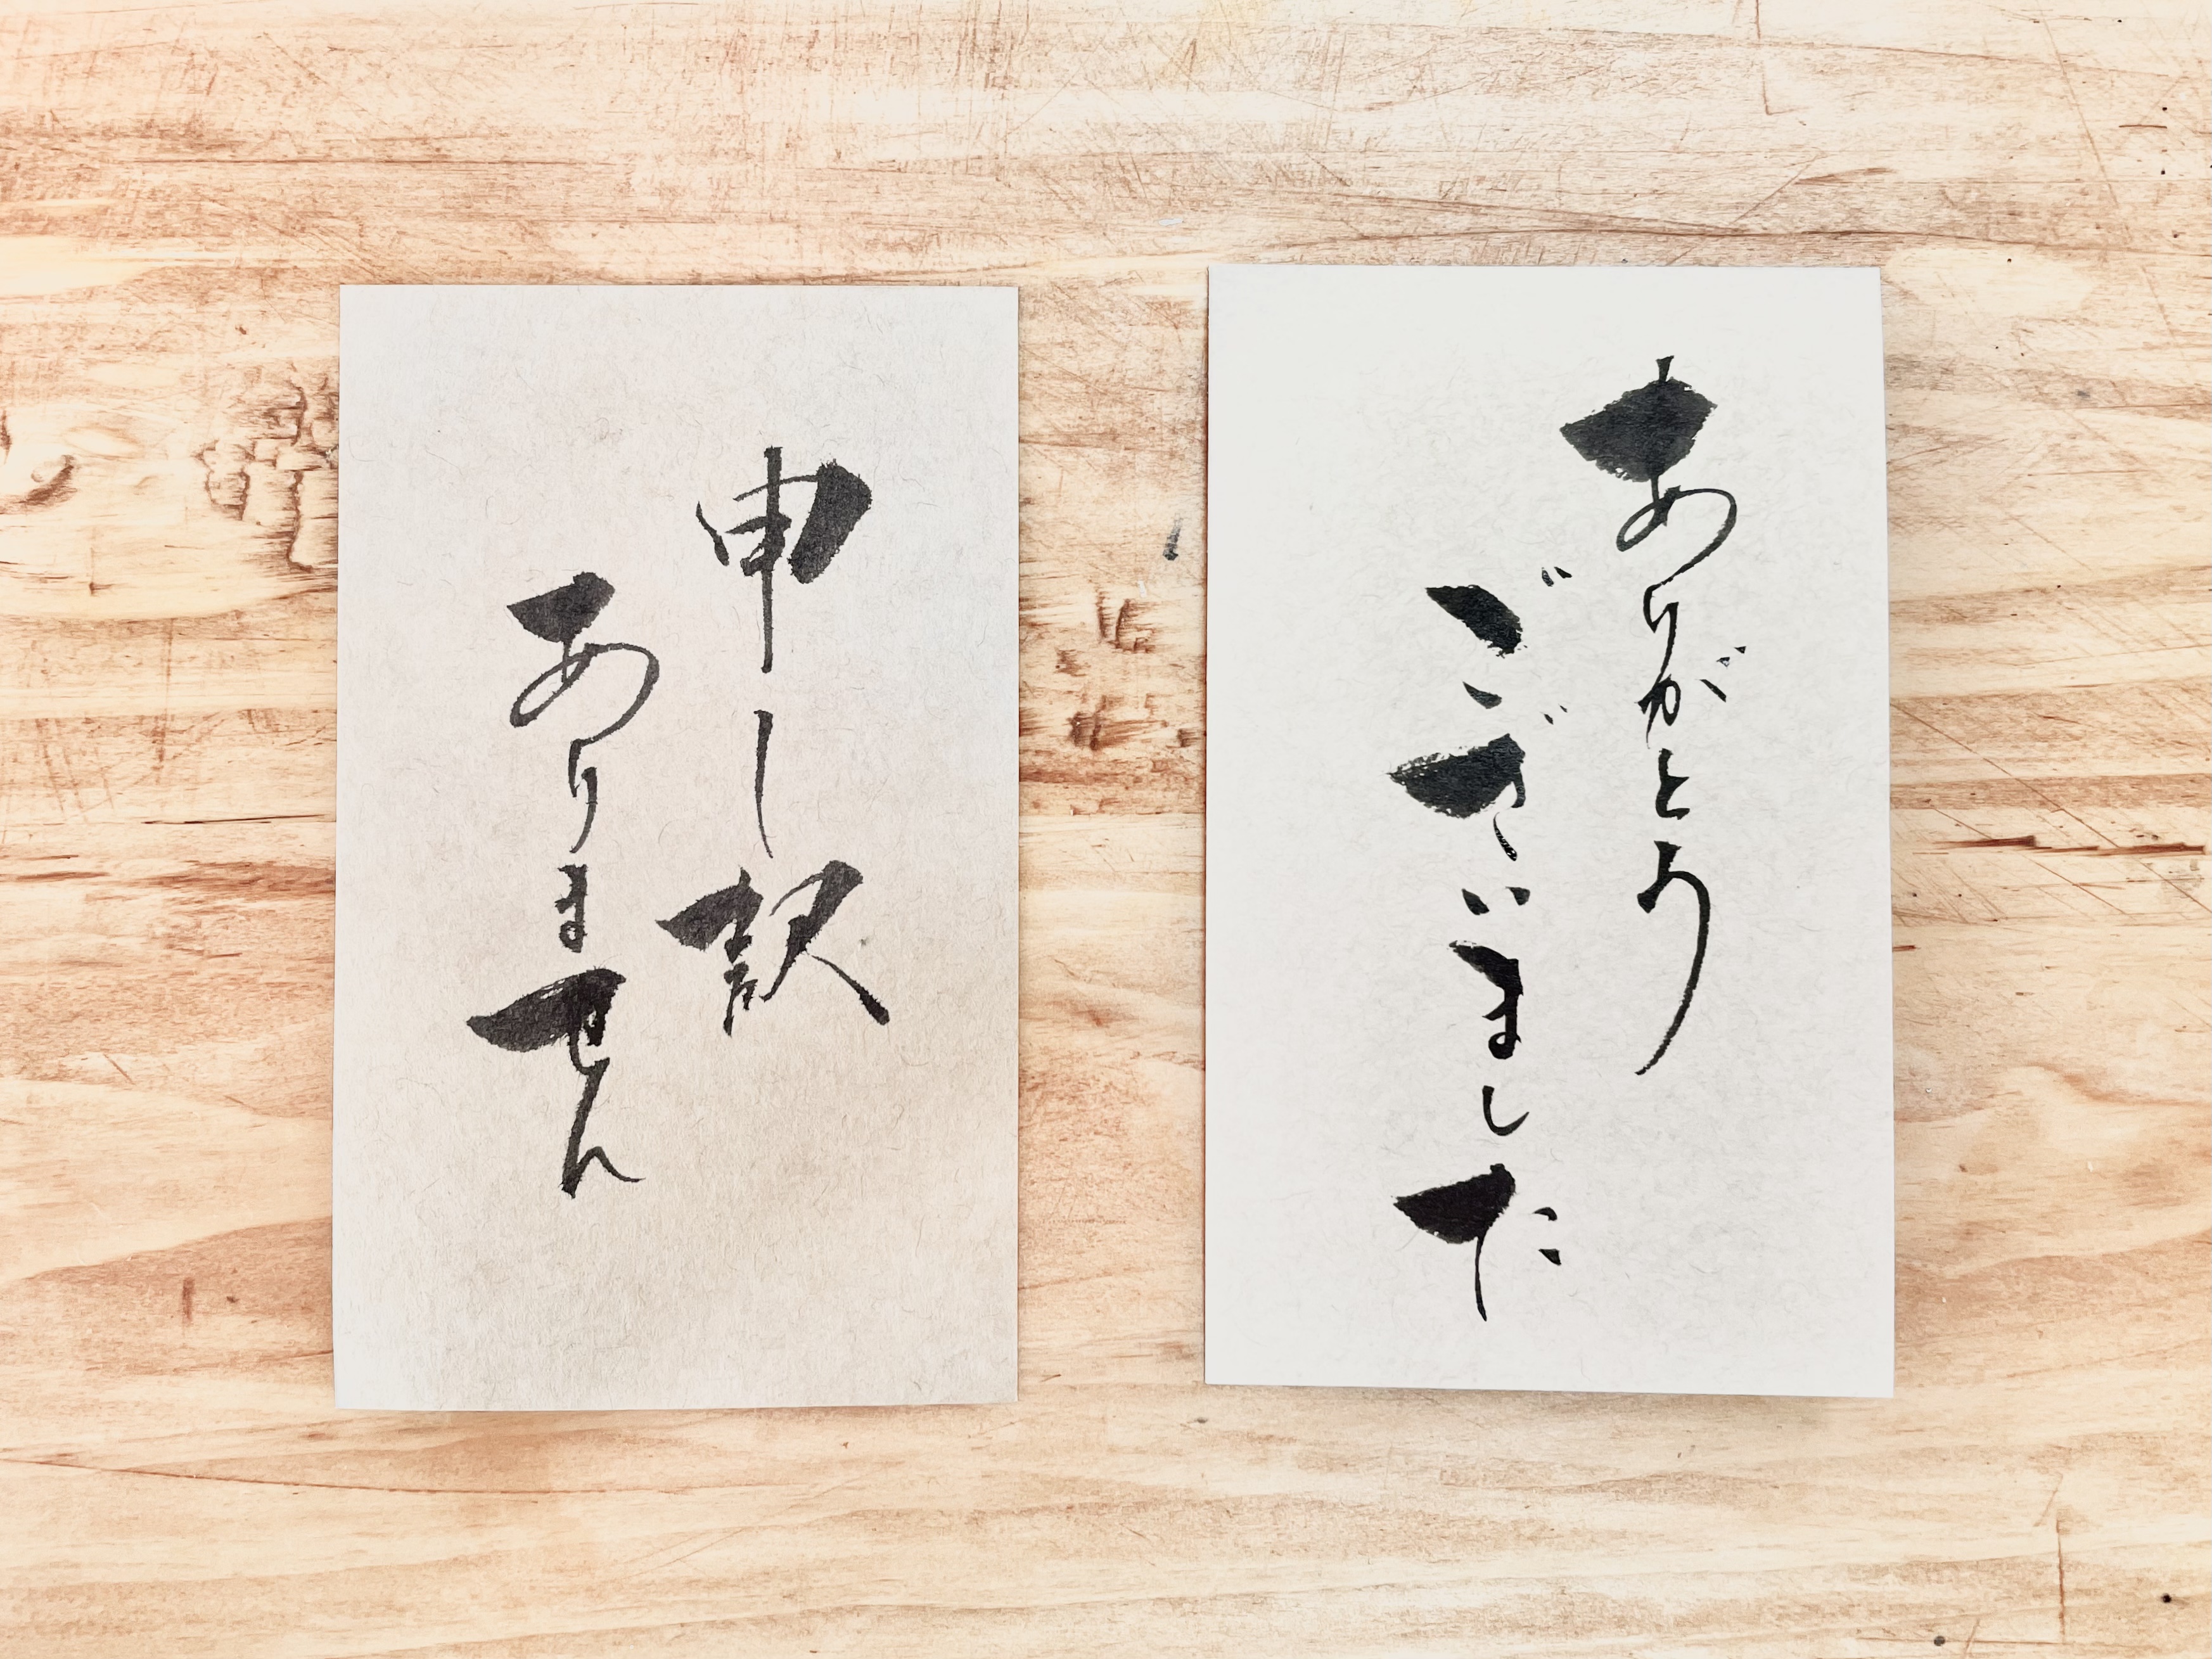 ありがとう
ございました
申し訳
ありません